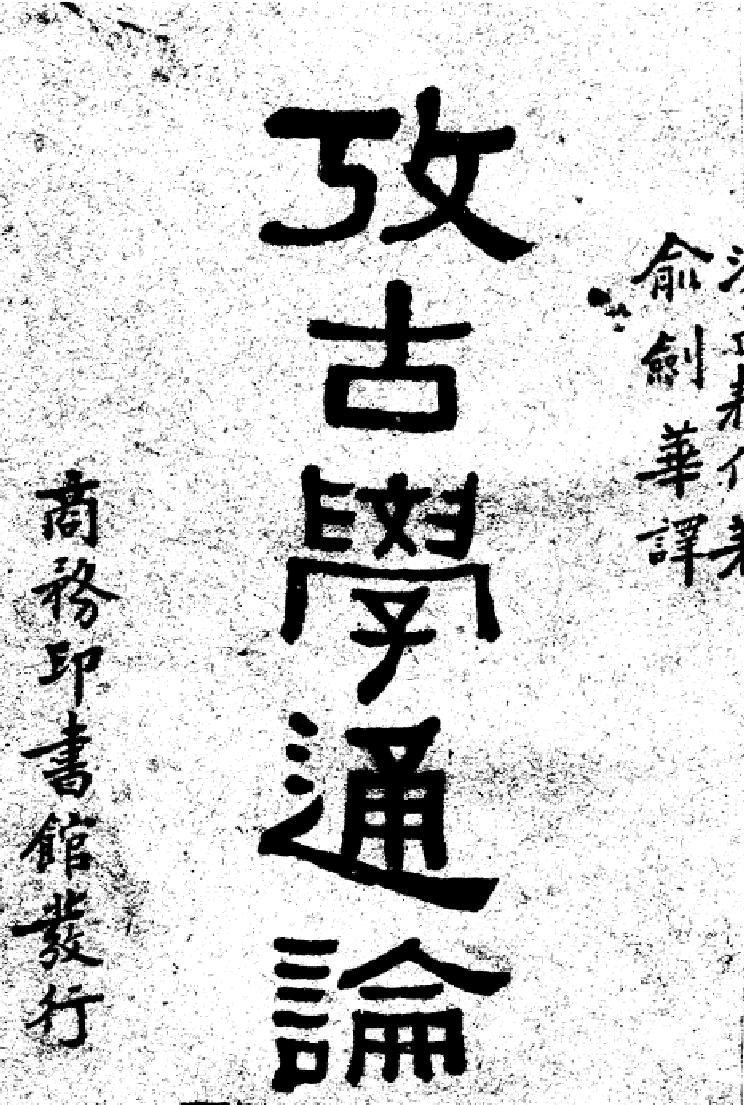 俞劍華譯
攷古學通論
商務印書館發行